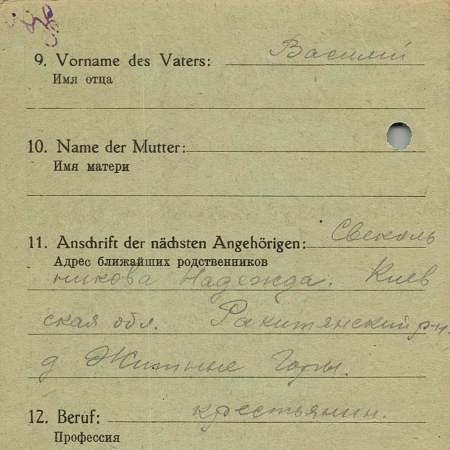 9. Vorname des Vaters: Василий
Имя отца
10. Name der Mutter:
Имя матери
11. Anschrift der nächsten Angehörigen: Свеколь
Адрес ближайших родственников
никова Надежда. Киев
ская обл. Ракитянский р-н.
д Житные Горы.
12. Beruf: крестьянин.
Профессия